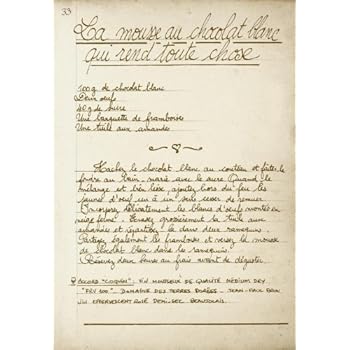 33
La mousse au chocolat blanc
qui rend toute chose
100g de chocolat blanc
Deux oeufs
40g de sucre
Une barquette de framboises
Une tuile aux amandes
Hachez le chocolat blanc au couteau et faites le
fondre au bain-marie avec le sucre. Quand le
mélange est bien lisse, ajoutez hors du feu les
jaunes d'oeuf un à un sans cesser de remuer.
Incorporez délicatement les blancs d'oeufs montés en
neige ferme. Ecrasez grossièrement la tuile aux
amandes et répartissez la dans deux ramequins.
Partagez également les framboises et versez la mousse
de chocolat blanc dans les ramequins.
Réservez deux heures au frais avant de déguster.
ACCORD "COQUIN" : EN MOUSSEUX DE QUALITÉ MÉDIUM DRY
"FRV 100" - DOMAINE DES TERRES DORÉES - JEAN-PAUL BRUN
VIN EFFERVESCENT ROSÉ DEMI-SEC BEAUJOLAIS.